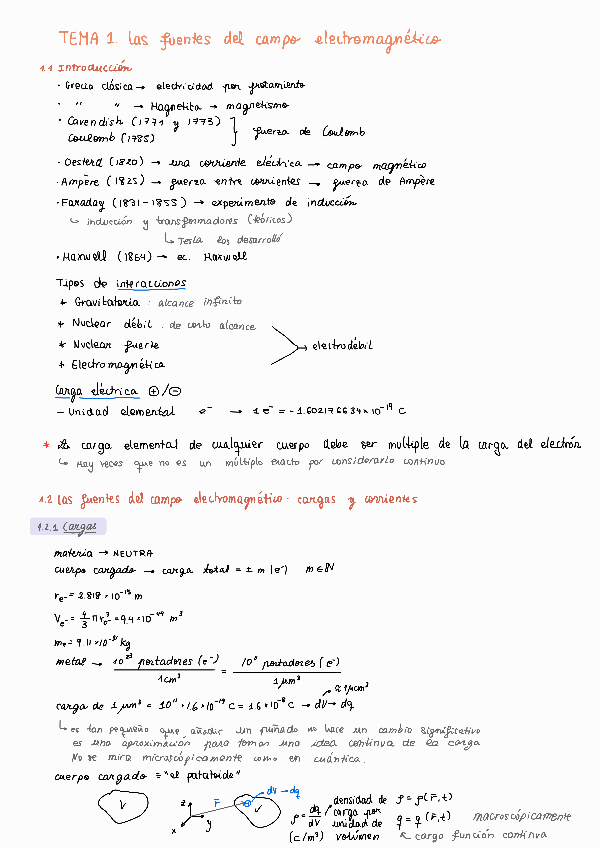 TEMA 1. Las fuentes del campo electromagnético
1.1 Introducción
· Grecia clásica → electricidad por frotamiento
· " " → Magnetita → magnetismo
· Cavendish (1771 y 1773)
Coulomb (1785) } fuerza de Coulomb
· Oesterd (1820) → una corriente eléctrica → campo magnético
· Ampère (1825) → fuerza entre corrientes → fuerza de Ampère
· Faraday (1831-1855) → experimento de inducción
↳ inducción y transformadores (teóricos)
↳ Tesla los desarrolló
· Maxwell (1864) → ec. Maxwell
Tipos de interacciones
+ Gravitatoria: alcance infinito
+ Nuclear débil: de corto alcance
* Nuclear fuerte → electrodébil
+ Electromagnética
Carga eléctrica ⊕/⊖
- Unidad elemental e⁻ → 1 e⁻ = -1.602176634×10⁻¹⁹ C
* La carga elemental de cualquier cuerpo debe ser multiplo de la carga del electrón
↳ Hay veces que no es un múltiplo exacto por considerarlo continuo
1.2 Las fuentes del campo electromagnético: cargas y corrientes
1.2.1 Cargas
materia → NEUTRA
cuerpo cargado → carga total = ± m |e⁻| m ∈ ℕ
r_e⁻ = 2.818×10⁻¹⁵ m
V_e⁻ = 4/3 π r_e⁻³ = 9.4×10⁻⁴⁴ m³
m_e⁻ = 9.11×10⁻³¹ kg
metal → 10²³ portadores (e⁻) / 1 cm³ = 10¹¹ portadores (e⁻) / 1 μm³
carga de 1 μm³ = 10¹¹ × 1.6×10⁻¹⁹ C = 1.6×10⁻⁸ C → dV → dq
↳ es tan pequeño que añadir un puñado no hace un cambio significativo
es una aproximación para tomar una idea continua de la carga
No se mira microscópicamente como en cuántica.
cuerpo cargado = "el patatoide"
V
z r̄ x y V dV → dq
ρ = dq/dV (C/m³) densidad de carga por unidad de volúmen
ρ = ρ(r̄,t)
q = q(r̄,t) macroscópicamente
↖ cargo función continua